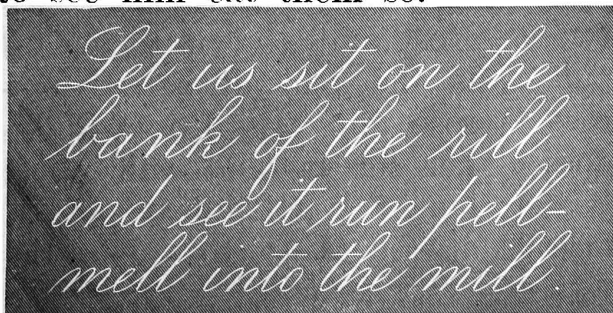 him them so.
Let us sit on the
bank of the rill
and see it run pell-
mell into the mill